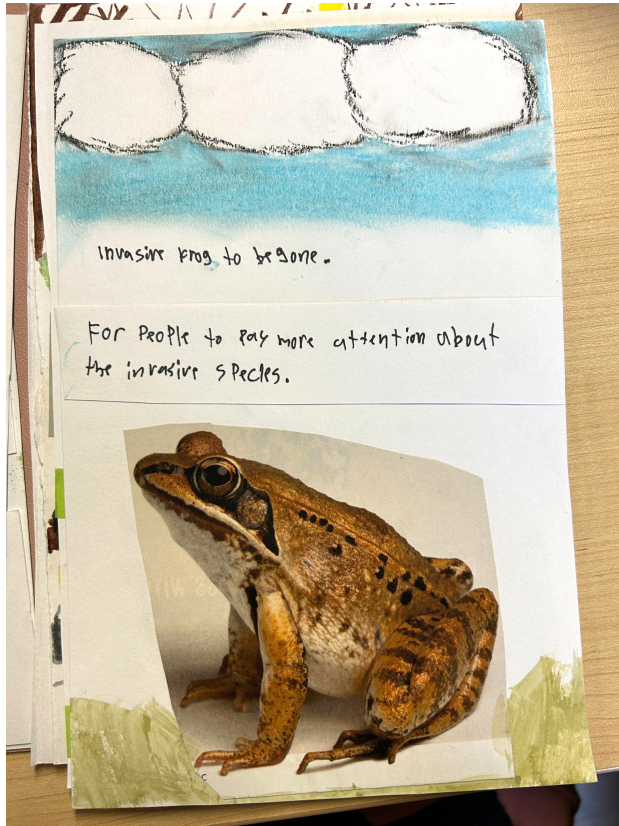 Invasive Frog to be gone.
For People to Pay more attention about
the invasive species.
C